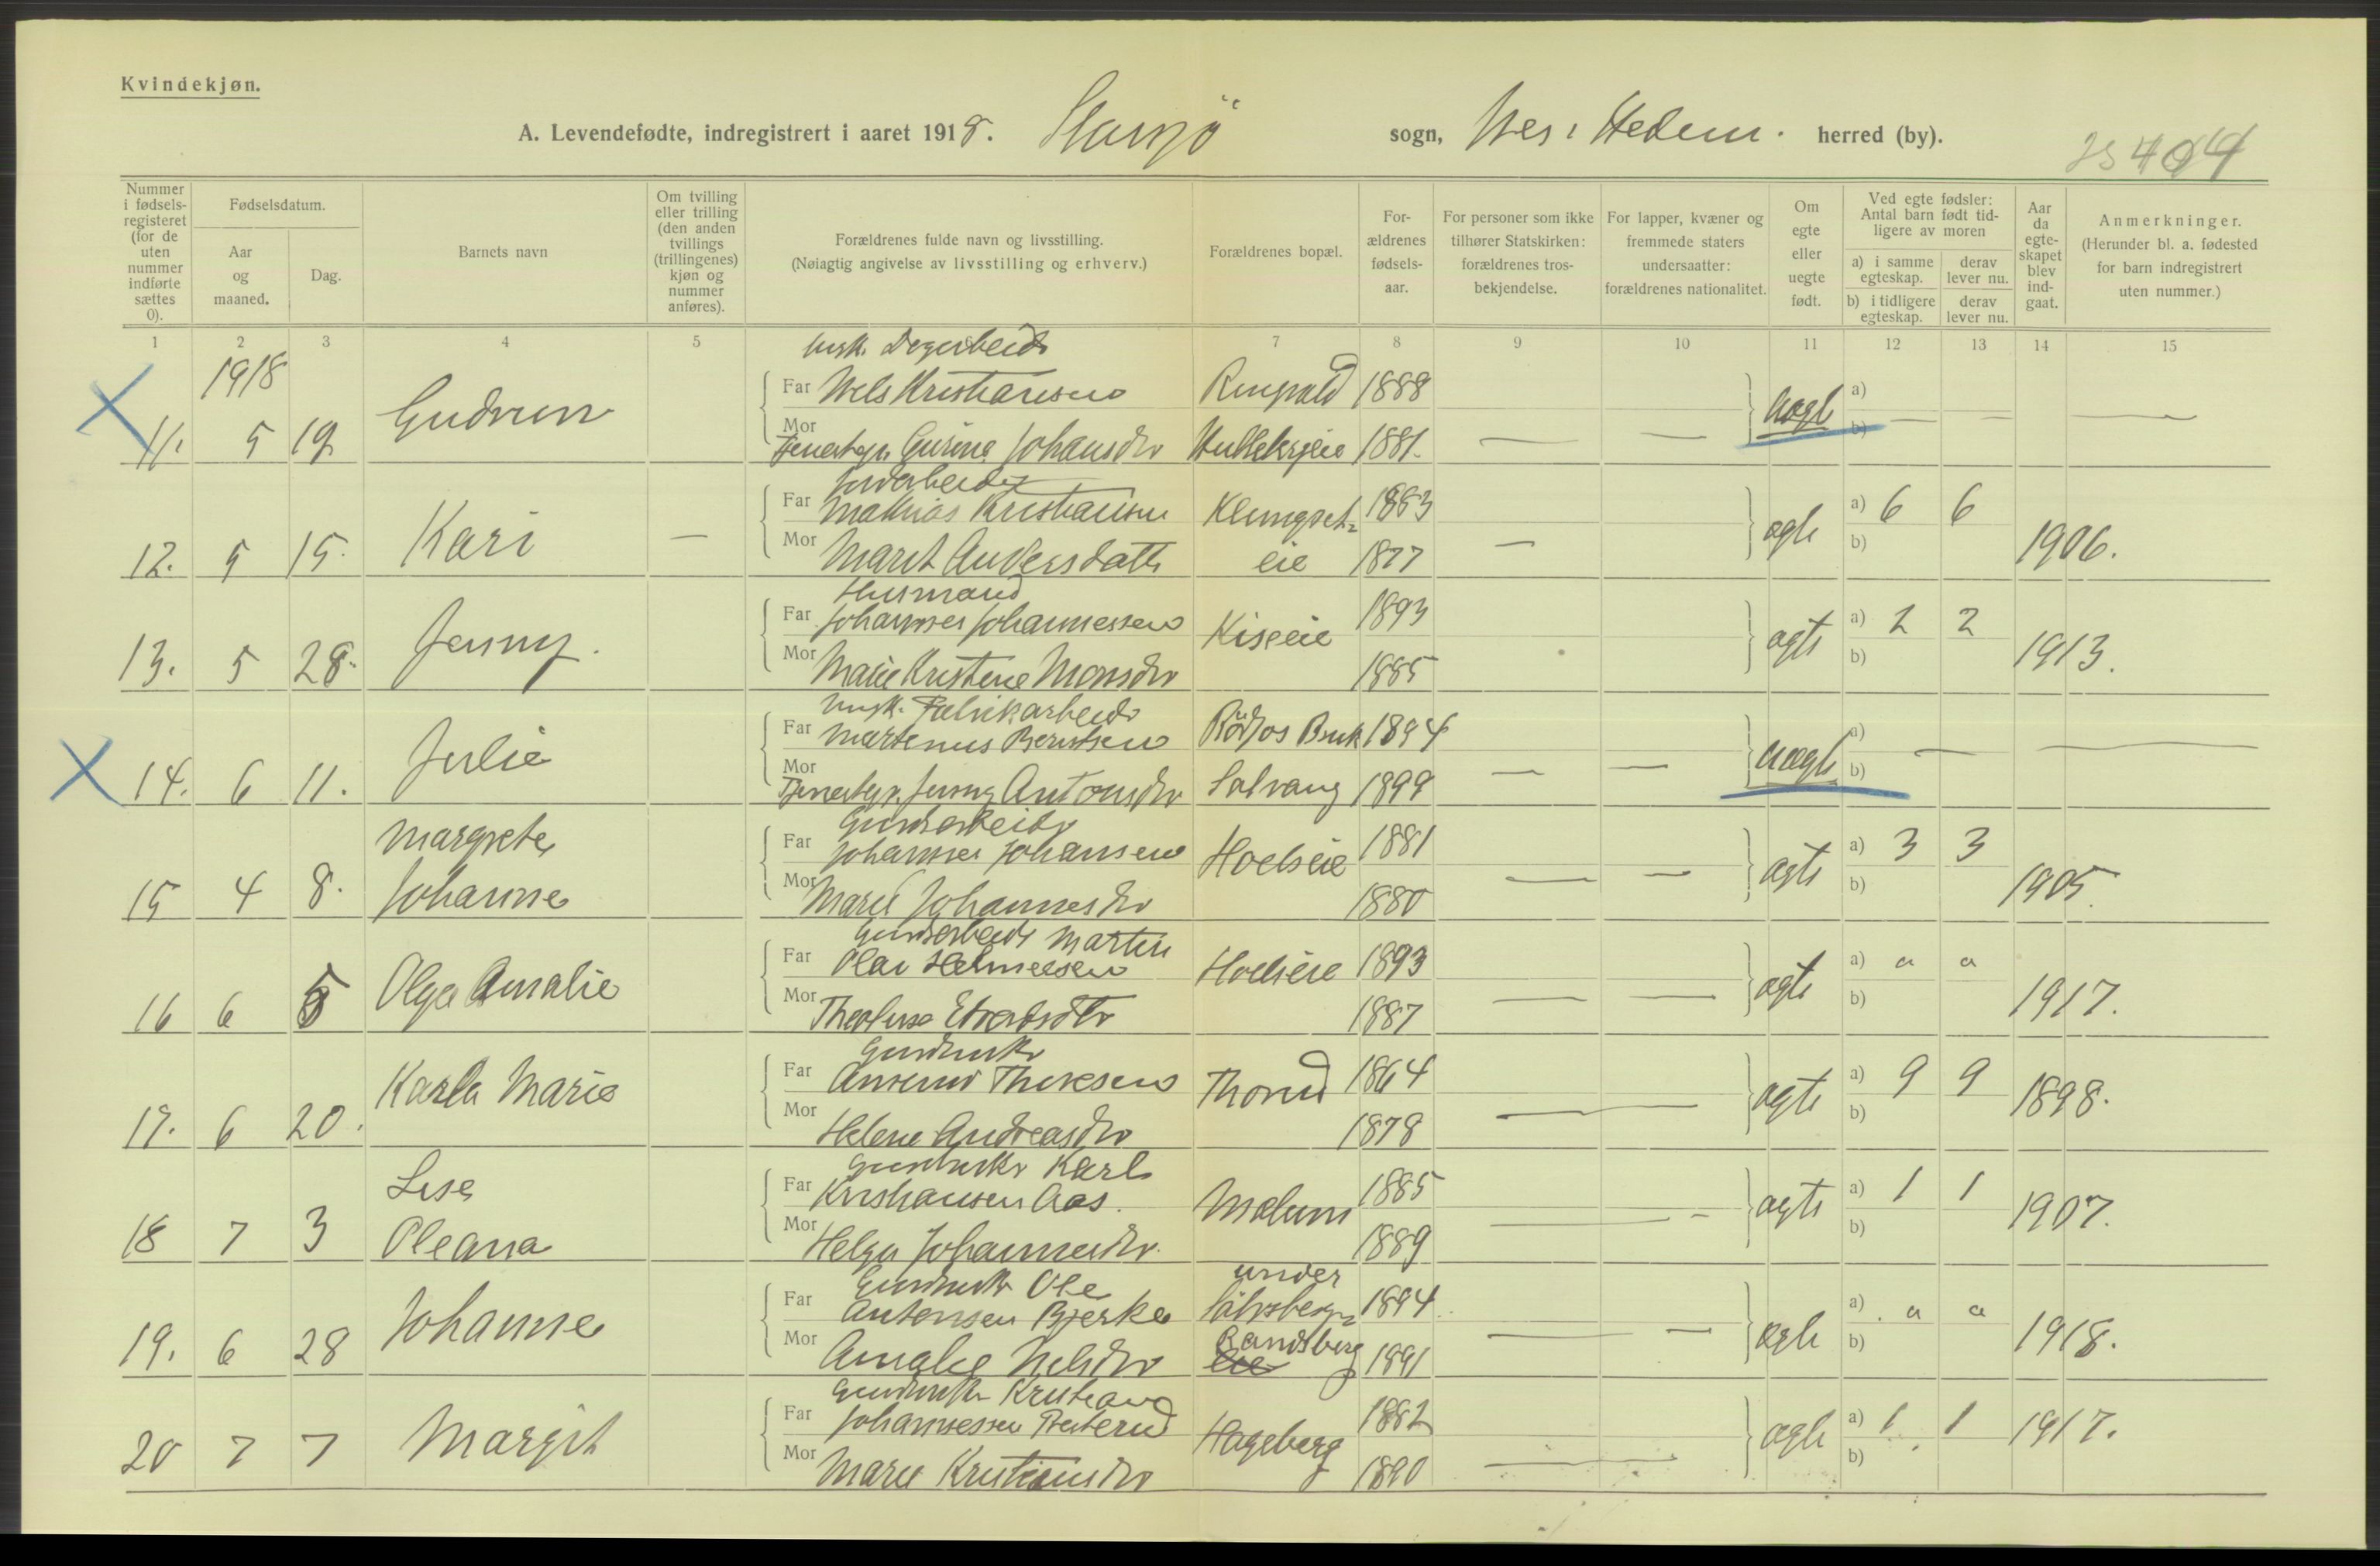 Kvindekjøn.
A. Levendefødte, indregistrert i aaret 1918. Stavsjö sogn, Nes i Hedem. herred (by).
Nummer i fødsels-registeret (for de uten nummer indførte sættes 0).
Fødselsdatum.
Aar og maaned.
Dag.
Barnets navn
Om tvilling eller trilling (den anden tvillings (trillingenes) kjøn og nummer anføres).
Forældrenes fulde navn og livsstilling.
(Nøiagtig angivelse av livsstilling og erhverv.)
Forældrenes bopæl.
For-ældrenes fødsels-aar.
For personer som ikke tilhører Statskirken: forældrenes tros-bekjendelse.
For lapper, kvæner og fremmede staters undersaatter: forældrenes nationalitet.
Om egte eller uegte født.
Ved egte fødsler: Antal barn født tid-ligere av moren
a) i samme egteskap.
derav lever nu.
b) i tidligere egteskap.
derav lever nu.
Aar da egte-skapet blev ind-gaat.
Anmerkninger.
(Herunder bl. a. fødested for barn indregistrert uten nummer.)
1 2 3 4 5 6 7 8 9 10 11 12 13 14 15
1918
11. 5 19 Gudrun
Far Nels Kristiansen 1888 a)
Mor Gurine Johansdtr 1881. b)
Far Mathias Kristiansen 1883 a) 6 6
12. 5 15. Kari — Mor Marit Andersdatter eie 1877 — b) 1906.
Husmand
Far Johannes Johannessen Kiseeie 1893 a) 2 2
13. 5 28. Jenny. Mor Marie Kristine Monsdtr 1885 b) 1913.
Fabrikarbeider
Far Martinus Berntsen Bruk 1894 a)
14. 6 11. Julie Mor Jenny Antonsdtr Solvang 1899 b)
Gaardsarbeider
Margrete Far Johannes Johansen Hoelseie 1881 a) 3 3
15 4 8. Johanne Mor Marie Johannesdtr 1880 b) 1905.
Gaardsarbeider Martin
Far Olav Helmersen Hoelseie 1893 a) a a
16 6 5 Olga Amalie Mor 1887 b) 1917.
Gaardbruker
Far Thoresen Thorud 1864 a) 9 9
17. 6 20. Karla Marie Mor Helene Andreasdtr 1878 b) 1898.
Gaardbruker Karl
Lise Far Kristiansen Aas. Malum 1885 a) 1 1
18 7 3 Oleana Mor Helga Johannesdtr. 1889 b) 1907.
Gaardbruker Ole under
Far Antonsen Bjerke 1894 a) a a
19. 6 28 Johanne Mor Amalie Nelsdtr Randsberg 1891 b) 1918.
Gaardbruker Kristian
Far Johannessen Hageberg 1882 a) 1 1 1917.
20 7 7 Margit Mor Marie Kristiansdtr 1890 b)